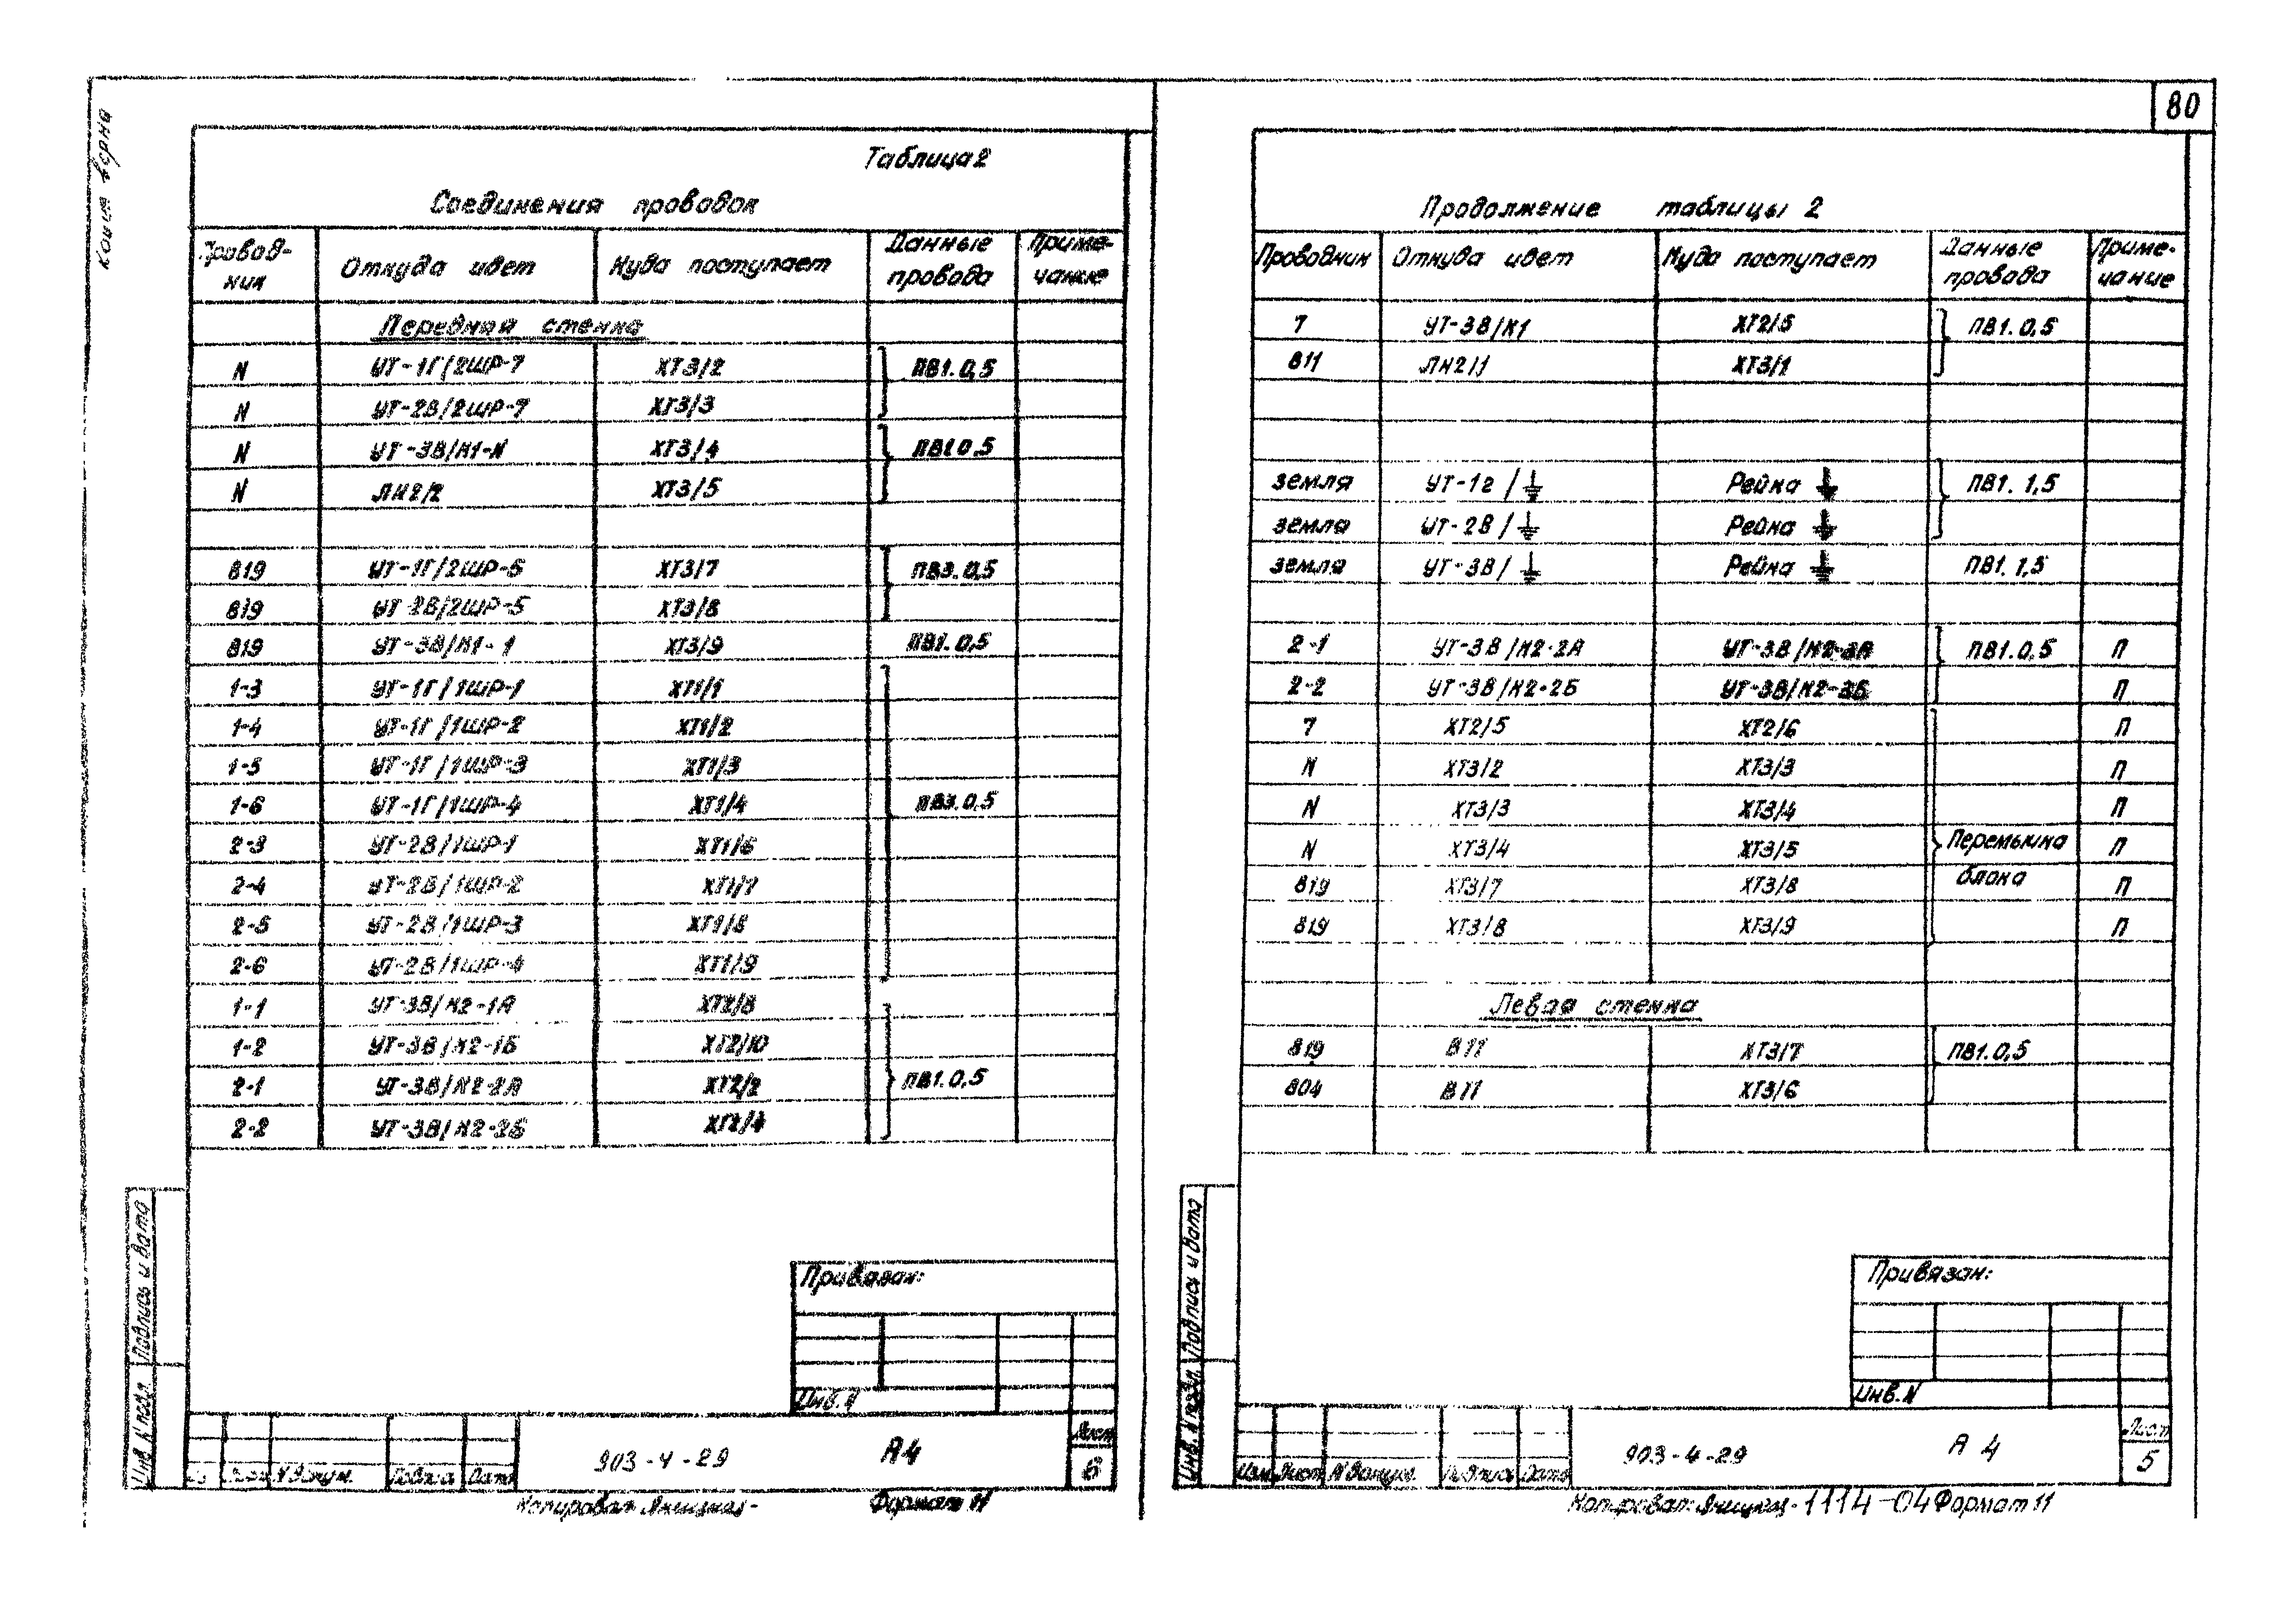 80
Копия верна
Таблица 2
Соединения проводок
Провод-ник Откуда идет Куда поступает Данные провода Приме-чание
Передняя стенка
N УТ-1Г/2ШР-7 ХТ3/2 ПВ1.0,5
N УТ-2В/2ШР-7 ХТ3/3
N УТ-3В/К1-N ХТ3/4 ПВ1 0,5
N ЛК2/2 ХТ3/5
819 УТ-1Г/2ШР-5 ХТ3/7 ПВ3.0,5
819 УТ-2В/2ШР-5 ХТ3/8
819 УТ-3В/К1-1 ХТ3/9 ПВ1.0,5
1-3 УТ-1Г/1ШР-1 ХТ1/1
1-4 УТ-1Г/1ШР-2 ХТ1/2
1-5 УТ-1Г/1ШР-3 ХТ1/3
1-6 УТ-1Г/1ШР-4 ХТ1/4 ПВ3.0,5
2-3 УТ-2В/1ШР-1 ХТ1/6
2-4 УТ-2В/1ШР-2 ХТ1/7
2-5 УТ-2В/1ШР-3 ХТ1/8
2-6 УТ-2В/1ШР-4 ХТ1/9
1-1 УТ-3В/К2-1А ХТ2/8
1-2 УТ-3В/К2-1Б ХТ2/10
2-1 УТ-3В/К2-2А ХТ2/2 ПВ1.0,5
2-2 УТ-3В/К2-2Б ХТ2/4
Привязан:
Инв.N
Инв.N подл. Подпись и дата
N докум. Подпись Дата
903-4-29 А4 Лист 6
Копировал: Формат 11
Продолжение таблицы 2
Проводник Откуда идет Куда поступает Данные провода Приме-чание
7 УТ-3В/К1 ХТ2/5 ПВ1.0,5
811 ЛК2/1 ХТ3/1
земля УТ-1г/⏚ Рейка ⏚ ПВ1. 1,5
земля УТ-2В/⏚ Рейка ⏚
земля УТ-3В/⏚ Рейка ⏚ ПВ1. 1,5
2-1 УТ-3В/К2-2А УТ-3В/К2-3А ПВ1.0,5 П
2-2 УТ-3В/К2-2Б УТ-3В/К2-3Б П
7 ХТ2/5 ХТ2/6 П
N ХТ3/2 ХТ3/3 П
N ХТ3/3 ХТ3/4 П
N ХТ3/4 ХТ3/5 Перемычка П
819 ХТ3/7 ХТ3/8 блока П
819 ХТ3/8 ХТ3/9 П
Левая стенка
819 В11 ХТ3/7 ПВ1.0,5
804 В11 ХТ3/6
Привязан:
Инв.N
Инв.N подл. Подпись и дата
Изм Лист N докум. Подпись Дата
903-4-29 А 4 Лист 5
Копировал: 1114-04 Формат 11